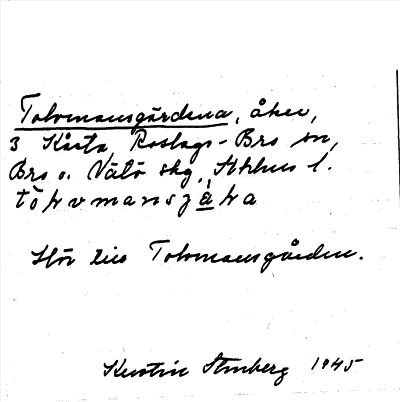 Tolvmansgärdena, åker,
3 Kårsta, Roslags-Bro sn,
Bro o. Vätö skg., Sthlms l.
Hör till Tolvmansgården.
Kerstin Stenberg 1945